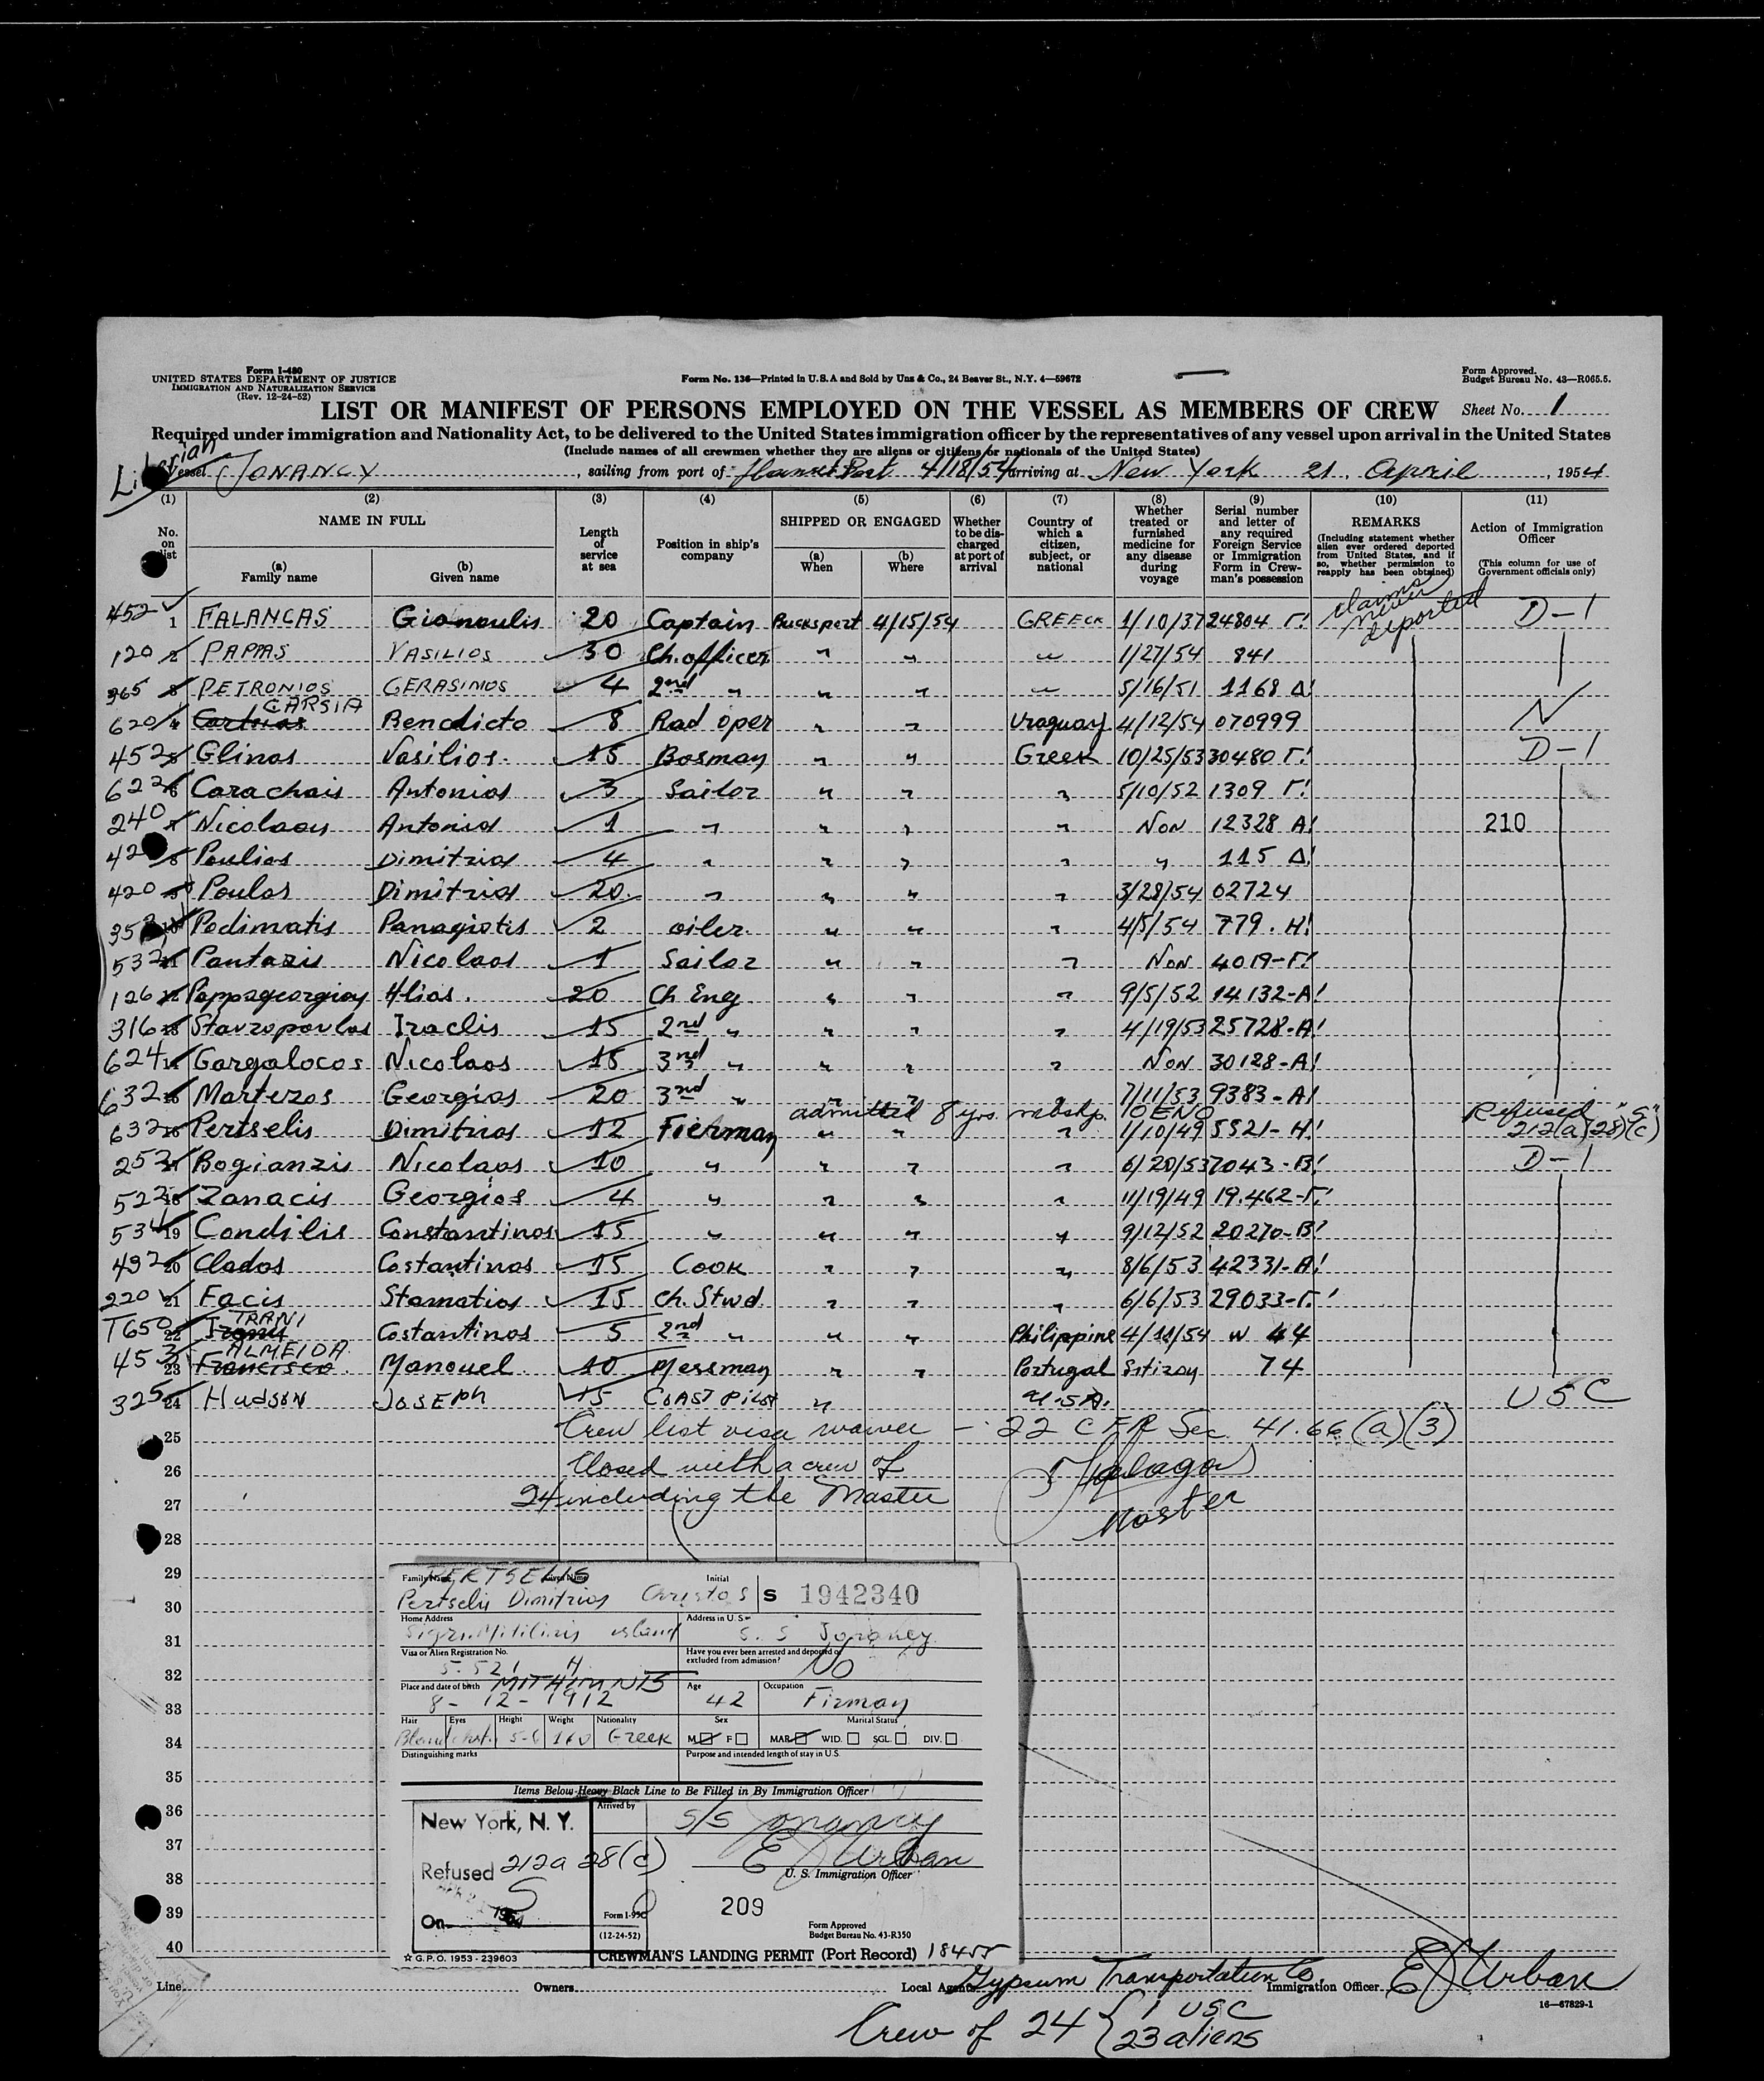 Form I-480
UNITED STATES DEPARTMENT OF JUSTICE
IMMIGRATION AND NATURALIZATION SERVICE
(Rev. 12-24-52)
Form No. 136—Printed in U.S.A and Sold by Unz & Co., 24 Beaver St., N.Y. 4—59672
Form Approved.
Budget Bureau No. 43—R065.5.
LIST OR MANIFEST OF PERSONS EMPLOYED ON THE VESSEL AS MEMBERS OF CREW Sheet No. 1
Required under immigration and Nationality Act, to be delivered to the United States immigration officer by the representatives of any vessel upon arrival in the United States
(Include names of all crewmen whether they are aliens or citizens or nationals of the United States)
Liberian
Vessel JONANCY, sailing from port of 4/18/54 arriving at New York 21, April, 1954
(1) (2) (3) (4) (5) (6) (7) (8) (9) (10) (11)
No. on list
NAME IN FULL
(a) Family name
(b) Given name
Length of service at sea
Position in ship's company
SHIPPED OR ENGAGED
(a) When
(b) Where
Whether to be discharged at port of arrival
Country of which a citizen, subject, or national
Whether treated or furnished medicine for any disease during voyage
Serial number and letter of any required Foreign Service or Immigration Form in Crewman's possession
REMARKS
(Including statement whether alien ever ordered deported from United States, and if so, whether permission to reapply has been obtained)
Action of Immigration Officer
(This column for use of Government officials only)
452 1 FALANGAS Gianoulis 20 Captain Bucksport 4/15/54 GREECK 1/10/37 24804 Γ! claims never deported D-1
120 2 PAPPAS VASILIOS 30 Ch. officer " " " 1/27/54 841
365 3 PETRONIOS GERASIMOS 4 2nd " " " " 5/16/51 1168 Δ!
620 4 CARSIA Benedicto 8 Rad oper " " Uraguay 4/12/54 070999 N
452 5 Glinos Vasilios 15 Bosman " " Greek 10/25/53 30480 Γ! D-1
622 6 Carachais Antonios 3 Sailor " " " 5/10/52 1309 Γ!
240 7 Nicolaou Antonios 1 " " " " Non 12328 A! 210
42 8 Poulios Dimitrios 4 " " " " " 115 Δ!
420 9 Poulos Dimitrios 20 " " " " 3/28/54 02724
353 10 Pedimatis Panagiotis 2 oiler " " " 4/5/54 779. H!
532 11 Pantazis Nicolaos 1 Sailor " " " Non 4019-Γ!
126 12 Pappageorgiou Hlias 20 Ch Eng " " " 9/5/52 14132-A!
316 13 Stavropoulos Iraclis 15 2nd " " " " 4/19/53 25728-A!
624 14 Gargalocos Nicolaos 15 3rd " " " " Non 30128-A!
632 15 Martezos Georgios 20 3rd " " " " 7/11/53 9383-A!
admitted 8 yrs. mbshp. OENO Refused "S"
632 16 Pertselis Dimitrios 12 Fierman " " " 1/10/49 5521-H! 212(a)(28)(c)
252 17 Bogianzis Nicolaos 10 " " " " 6/20/53 7043-B! D-1
522 18 Zanacis Georgios 4 " " " " 11/19/49 19.462-Γ!
534 19 Condilis Constantinos 15 " " " " 9/12/52 20270-B!
432 20 Clados Costantinos 15 Cook " " " 8/6/53 42331-A!
220 21 Facis Stamatios 15 Ch. Stwd. " " " 6/6/53 29033-Γ!
T650 22 TRANI Costantinos 5 2nd " " " Philippine 4/11/54 W 44
453 23 Francisco ALMEIDA Manouel 10 Messman " " Portugal 74
325 24 Hudson JOSEPH 15 COAST PILOT " U.S.A. USC
25 Crew list visa waiver - 22 CFR Sec. 41.66(a)(3)
26 Closed with a crew of
27 24 including the Master
Master
28
29
30
31
32
33
34
35
36
37
38
39
40
Family Name Given Name Initial
PERTSELIS
Pertselis Dimitrios Christos S 1942340
Home Address
Sigri Mitilinis island
Address in U.S.
S.S Jonancy
Visa or Alien Registration No.
5.521 H
Have you ever been arrested and deported or excluded from admission?
NO
Place and date of birth MITHIMNIS
8-12-1912
Age 42
Occupation Firman
Hair Eyes Height Weight Nationality Sex Marital Status
Blond chst. 5-6 160 Greek M F MAR. WID. SGL. DIV.
Distinguishing marks
Purpose and intended length of stay in U.S.
Items Below Heavy Black Line to Be Filled in By Immigration Officer
New York, N. Y.
Refused 212a 28(c)
S
On 1954
Arrived by
S/S Jonancy
E J Urban
U. S. Immigration Officer
209
Form I-95C
(12-24-52)
Form Approved
Budget Bureau No. 43-R350
☆ G.P.O. 1953-239603
CREWMAN'S LANDING PERMIT (Port Record) 18455
Line Owners Local Agents Gypsum Transportation Co. Immigration Officer E J Urban
16—67829-1
Crew of 24 { 1 USC
23 aliens